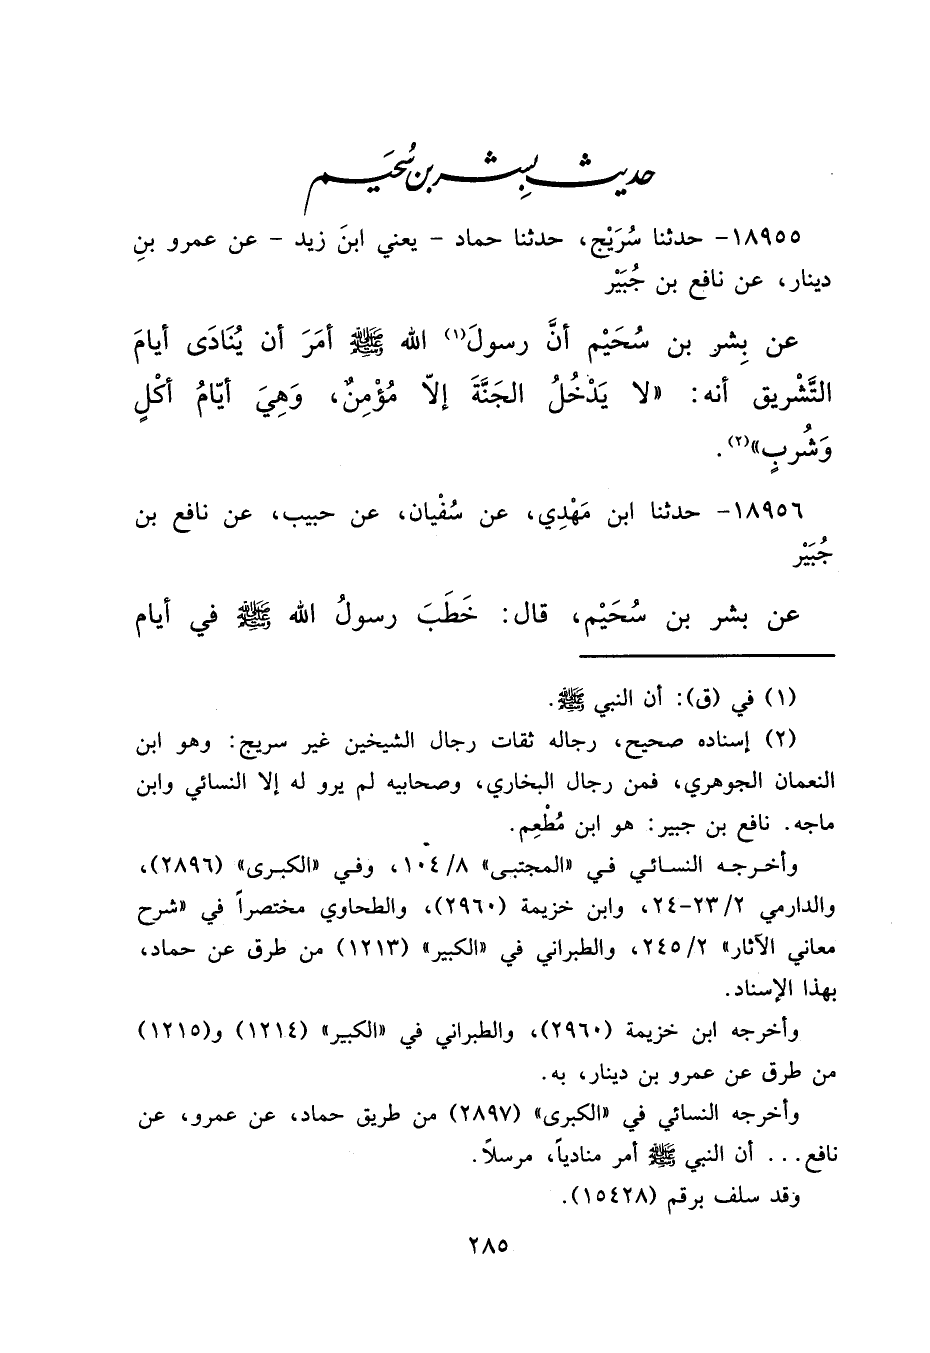 حديث بشر بن سُحَيم
١٨٩٥٥- حدثنا سُرَيْج، حدثنا حماد - يعني ابنَ زيد - عن عمرو بنِ
دينار، عن نافع بن جُبَيْر
عن بِشر بن سُحَيْم أنَّ رسولَ(١) الله ﷺ أمَرَ أن يُنَادَى أيامَ
التَّشْريق أنه: «لا يَدْخُلُ الجَنَّةَ إلّا مُؤْمِنٌ، وَهِيَ أيّامُ أكْلٍ
وَشُربٍ»(٢).
١٨٩٥٦- حدثنا ابن مَهْدِي، عن سُفْيان، عن حبيب، عن نافع بن
جُبَيْر
عن بشر بن سُحَيْم، قال: خَطَبَ رسولُ الله ﷺ في أيام
(١) في (ق): أن النبي ﷺ.
(٢) إسناده صحيح، رجاله ثقات رجال الشيخين غير سريج: وهو ابن
النعمان الجوهري، فمن رجال البخاري، وصحابيه لم يرو له إلا النسائي وابن
ماجه. نافع بن جبير: هو ابن مُطْعِم.
وأخرجه النسائي في «المجتبى» ١٠٤/٨، وفي «الكبرى» (٢٨٩٦)،
والدارمي ٢٣/٢-٢٤، وابن خزيمة (٢٩٦٠)، والطحاوي مختصراً في «شرح
معاني الآثار» ٢٤٥/٢، والطبراني في «الكبير» (١٢١٣) من طرق عن حماد،
بهذا الإسناد.
وأخرجه ابن خزيمة (٢٩٦٠)، والطبراني في «الكبير» (١٢١٤) و(١٢١٥)
من طرق عن عمرو بن دينار، به.
وأخرجه النسائي في «الكبرى» (٢٨٩٧) من طريق حماد، عن عمرو، عن
نافع... أن النبي ﷺ أمر منادياً، مرسلاً.
وقد سلف برقم (١٥٤٢٨).
٢٨٥